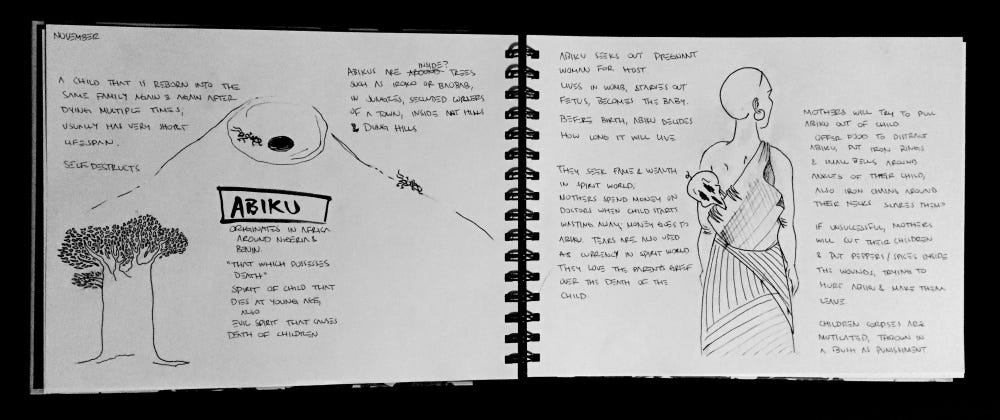 NOVEMBER
A CHILD THAT IS REBORN INTO THE
SAME FAMILY AGAIN & AGAIN AFTER
DYING MULTIPLE TIMES,
USUALLY HAS VERY SHORT
LIFESPAN.
SELF DESTRUCTS
INSIDE?
ABIKUS ARE AROUND TREES
SUCH AS IROKO OR BAOBAB,
IN JUNGLES, SECLUDED CORNERS
OF A TOWN, INSIDE ANT HILLS
& DUNG HILLS
ABIKU
ORIGINATES IN AFRICA
AROUND NIGERIA &
BENIN.
"THAT WHICH POSSESSES
DEATH"
SPIRIT OF CHILD THAT
DIES AT YOUNG AGE,
ALSO
EVIL SPIRIT THAT CAUSES
DEATH OF CHILDREN
ABIKU SEEKS OUT PREGNANT
WOMAN FOR HOST
LIVES IN WOMB, STARVES OUT
FETUS, BECOMES THE BABY.
BEFORE BIRTH, ABIKU DECIDES
HOW LONG IT WILL LIVE
THEY SEEK FAME & WEALTH
IN SPIRIT WORLD,
MOTHERS SPEND MONEY ON
DOCTORS WHEN CHILD STARTS
WASTING AWAY, MONEY GOES TO
ABIKU. TEARS ARE ALSO USED
AS CURRENCY IN SPIRIT WORLD.
THEY LOVE THE PARENTS GRIEF
OVER THE DEATH OF THE
CHILD.
MOTHERS WILL TRY TO PULL
ABIKU OUT OF CHILD
OFFER FOOD TO DISTRACT
ABIKU, PUT IRON RINGS
& SMALL BELLS AROUND
ANKLES OF THEIR CHILD,
ALSO IRON CHAINS AROUND
THEIR NECKS SCARES THEM?
IF UNSUCESSFUL, MOTHERS
WILL CUT THEIR CHILDREN
& PUT PEPPERS/SPICES INSIDE
THE WOUNDS, TRYING TO
HURT ABIKU & MAKE THEM
LEAVE.
CHILDREN CORPSES ARE
MUTILATED, THROWN IN
A BUSH AS PUNISHMENT